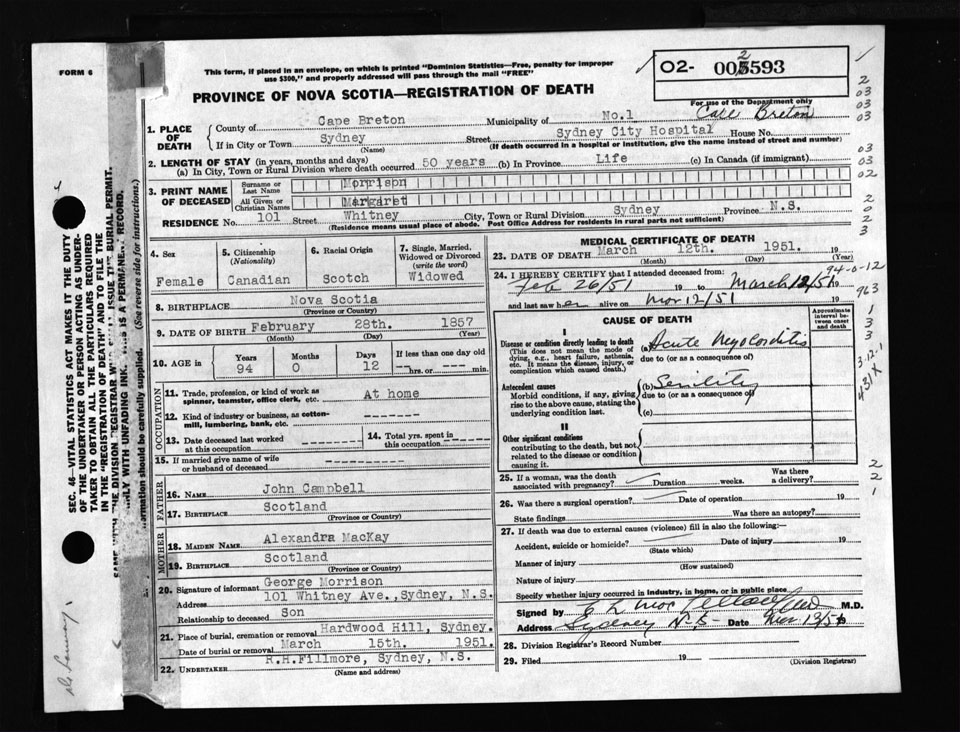 FORM 6
This form, if placed in an envelope, on which is printed "Dominion Statistics—Free, penalty for improper
use $300," and properly addressed will pass through the mail "FREE"
O2- 005593
2
PROVINCE OF NOVA SCOTIA—REGISTRATION OF DEATH
For use of the Department only
Cape Breton
1. PLACE OF DEATH
County of Cape Breton Municipality of No.1
If in City or Town Sydney Street Sydney City Hospital House No.
(Name) (If death occurred in a hospital or institution, give the name instead of street and number)
2. LENGTH OF STAY (in years, months and days)
(a) In City, Town or Rural Division where death occurred 50 years (b) In Province Life (c) In Canada (if immigrant)
3. PRINT NAME OF DECEASED
Surname or Last Name Morrison
All Given or Christian Names Margaret
RESIDENCE No. 101 Street Whitney City, Town or Rural Division Sydney Province N.S.
(Residence means usual place of abode. Post Office Address for residents in rural parts not sufficient)
4. Sex Female
5. Citizenship (Nationality) Canadian
6. Racial Origin Scotch
7. Single, Married, Widowed or Divorced (write the word) Widowed
8. BIRTHPLACE Nova Scotia
(Province or Country)
9. DATE OF BIRTH February 28th. 1857
(Month) (Day) (Year)
10. AGE in Years 94 Months 0 Days 12 If less than one day old
hrs. or min.
OCCUPATION
11. Trade, profession, or kind of work as spinner, teamster, office clerk, etc. At home
12. Kind of industry or business, as cotton-mill, lumbering, bank, etc.
13. Date deceased last worked at this occupation
14. Total yrs. spent in this occupation
15. If married give name of wife or husband of deceased
FATHER
16. NAME John Campbell
17. BIRTHPLACE Scotland
(Province or Country)
MOTHER
18. MAIDEN NAME Alexandra MacKay
19. BIRTHPLACE Scotland
(Province or Country)
20. Signature of informant George Morrison
Address 101 Whitney Ave., Sydney, N.S.
Relationship to deceased Son
21. Place of burial, cremation or removal Hardwood Hill, Sydney.
Date of burial or removal March 15th. 1951.
22. UNDERTAKER R.H.Fillmore, Sydney, N.S.
(Name and address)
MEDICAL CERTIFICATE OF DEATH
23. DATE OF DEATH March 12th. 1951. 19
(Month) (Day) (Year)
94-0-12
24. I HEREBY CERTIFY that I attended deceased from:
Feb 26/51 19 to March 12/51 19
and last saw her alive on Mar 12/51 19
CAUSE OF DEATH
Approximate interval between onset and death
I
Disease or condition directly leading to death
(This does not mean the mode of dying, e.g., heart failure, asthenia, etc. It means the disease, injury, or complication which caused death.)
(a) Acute Myocarditis
due to (or as a consequence of)
Antecedent causes
Morbid conditions, if any, giving rise to the above cause, stating the underlying condition last.
(b) Senility
due to (or as a consequence of)
(c)
II
Other significant conditions
contributing to the death, but not related to the disease or condition causing it.
25. If a woman, was the death associated with pregnancy? Duration weeks. Was there a delivery?
26. Was there a surgical operation? Date of operation 19
State findings Was there an autopsy?
27. If death was due to external causes (violence) fill in also the following:—
Accident, suicide or homicide? Date of injury 19
(State which)
Manner of injury
(How sustained)
Nature of injury
Specify whether injury occurred in industry, in home, or in public place
Signed by M.D.
Address Sydney N.S- Date Mar 13/51
28. Division Registrar's Record Number
29. Filed 19
(Division Registrar)
SEC. 46—VITAL STATISTICS ACT MAKES IT THE DUTY
OF THE UNDERTAKER OR PERSON ACTING AS UNDER-
TAKER TO OBTAIN ALL THE PARTICULARS REQUIRED
IN THE "REGISTRATION OF DEATH" AND TO FILE THE
THE DIVISION REGISTRAR ISSUE THE BURIAL PERMIT.
WITH UNFADING INK. IS A PERMANENT RECORD.
should be carefully supplied. (See reverse side for instructions.)
2
03
03
03
03
03
02
2
0
2
3
963
1
3
3
3-12-1
431X
2
2
1